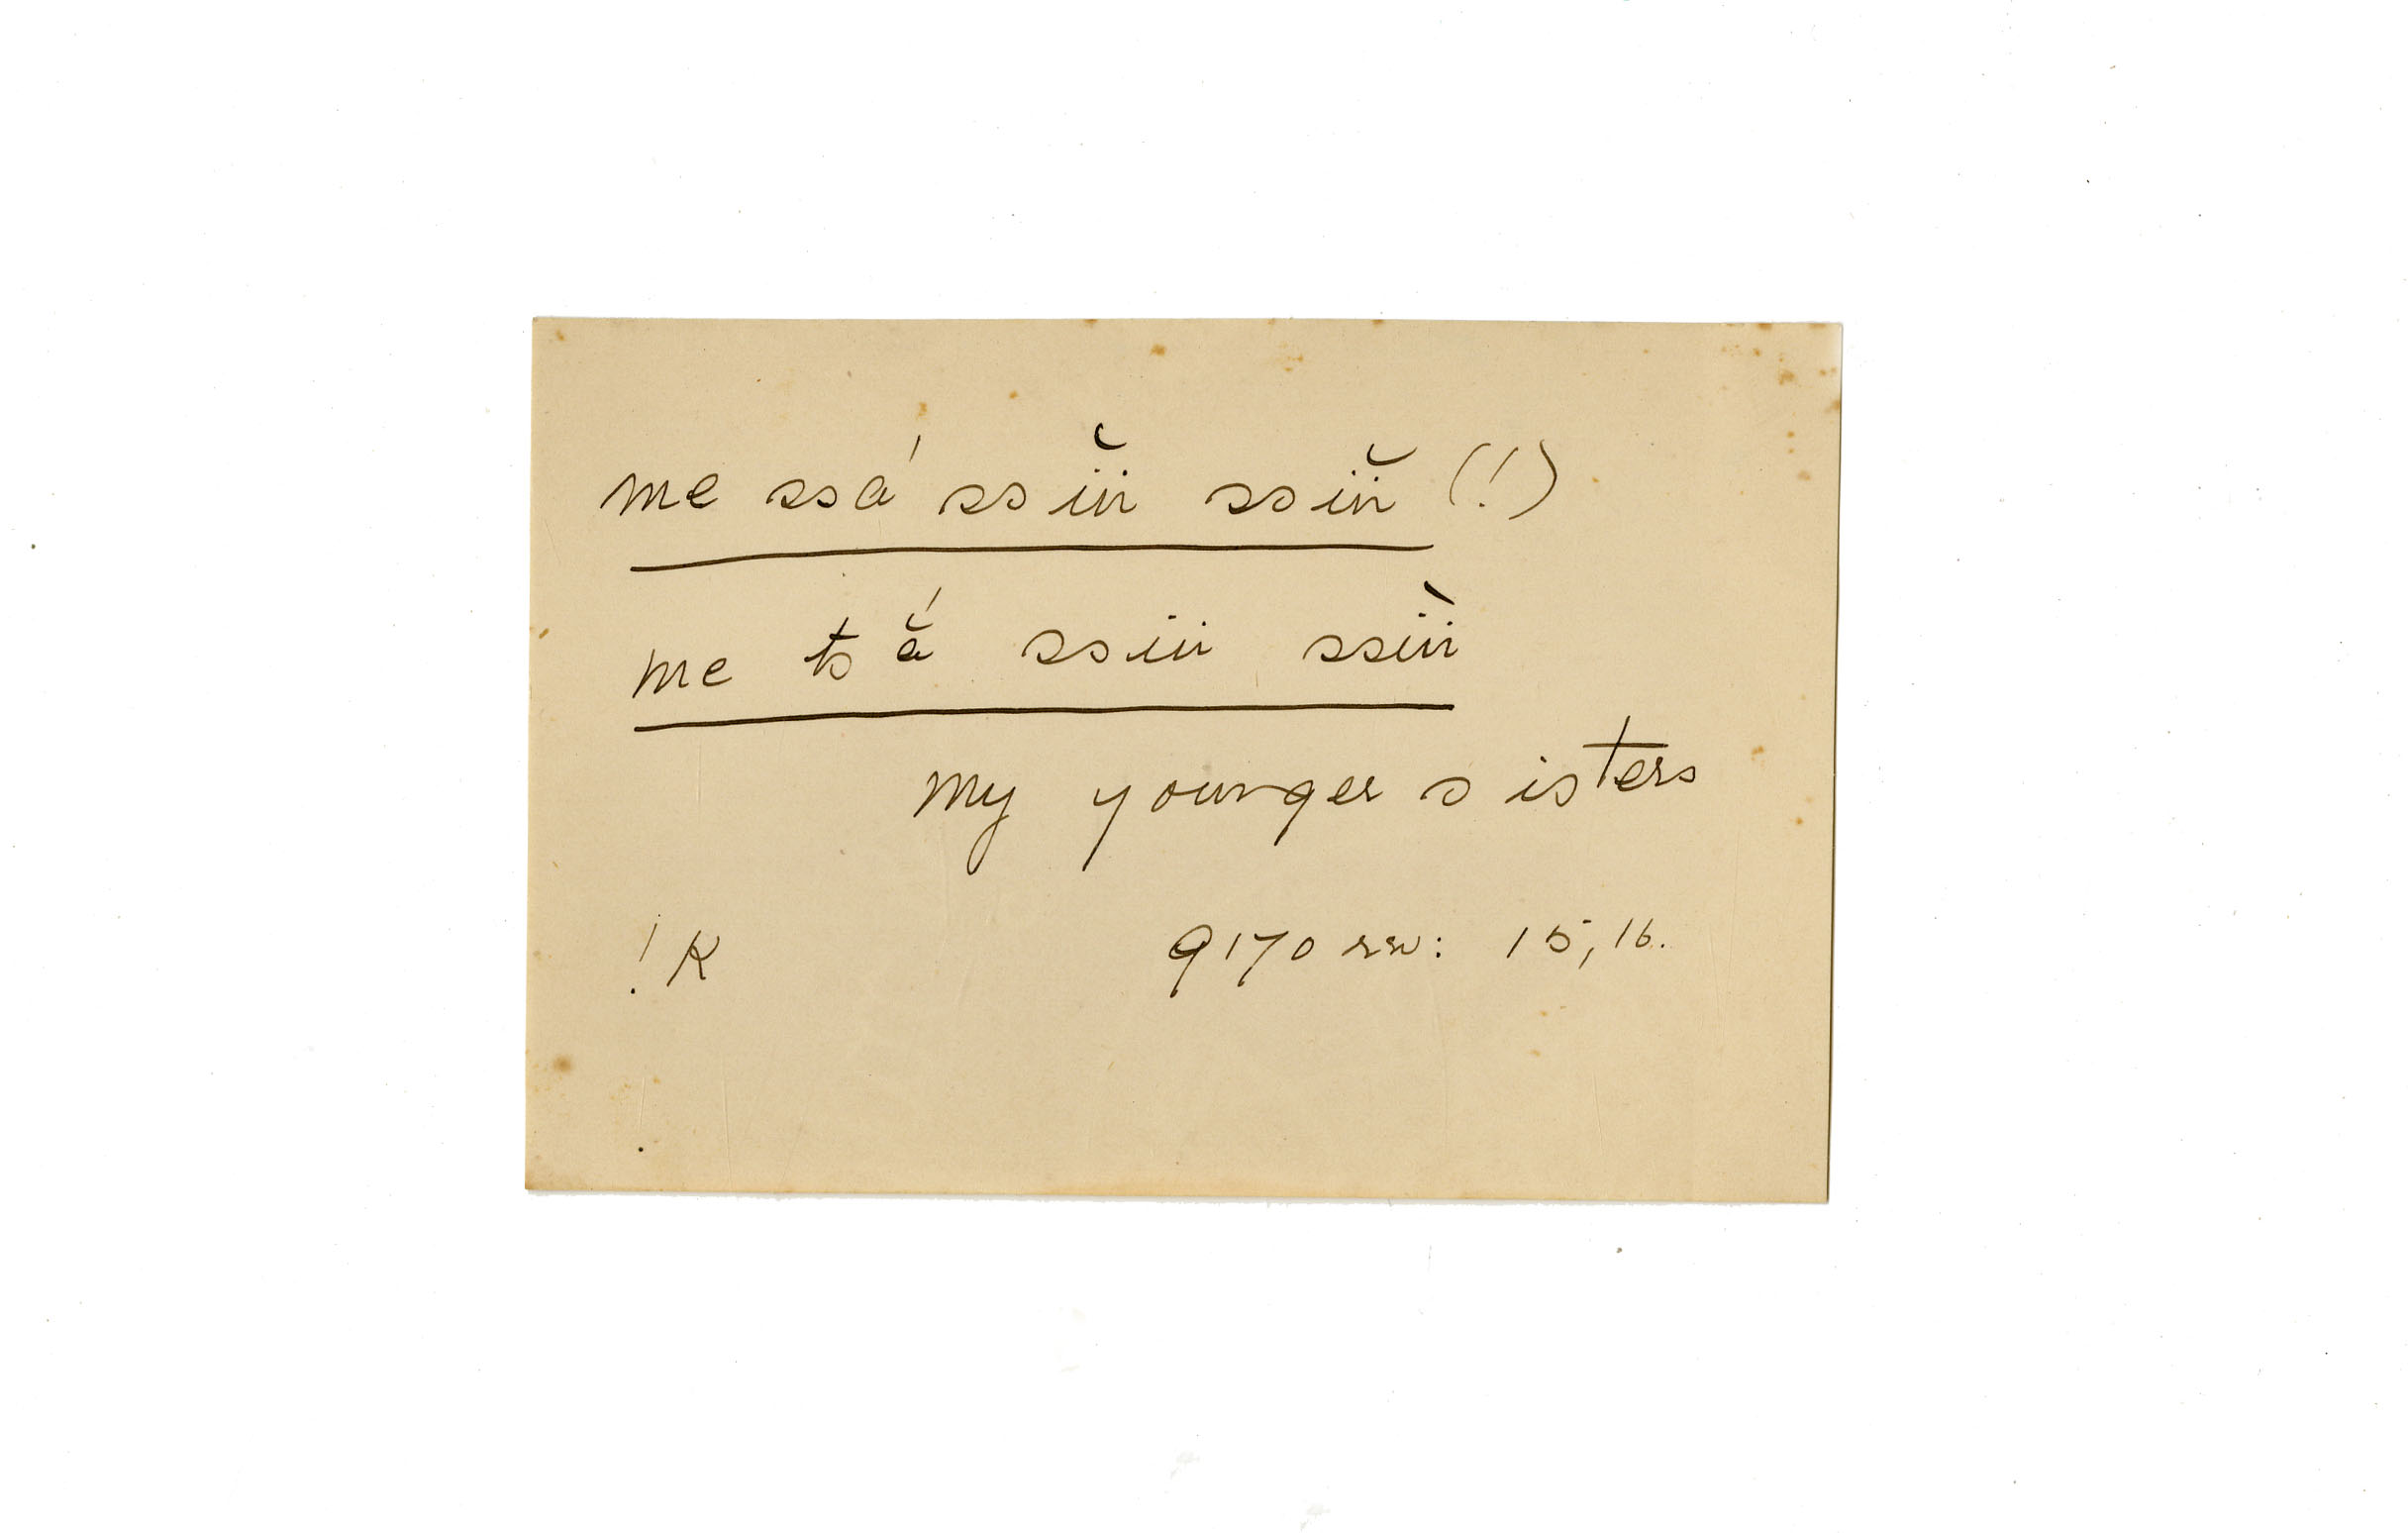 me ssá ssĭï ssĭï (!)
me tsắ ssïï ssìï
my younger sisters
!K 9170 rev: 15, 16.